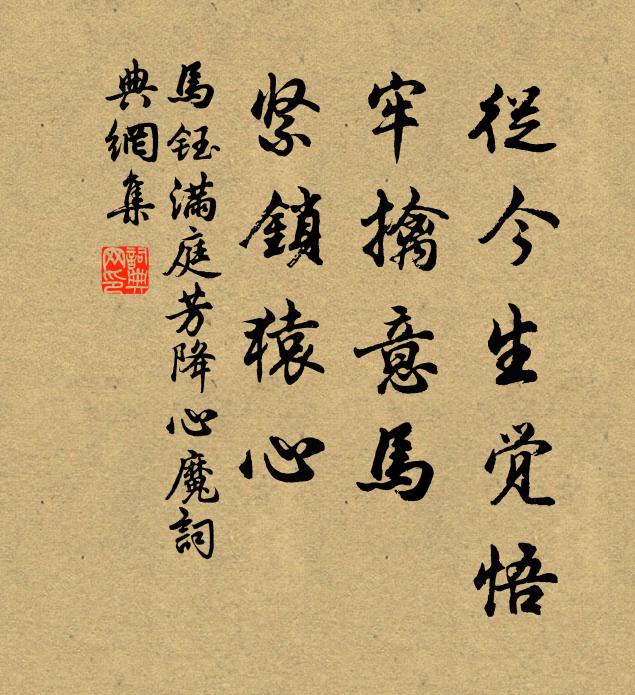 從今生覺悟
牢擒意馬
緊鎖猿心
馬鈺滿庭芳降心魔詞
典網集
詞典
网印